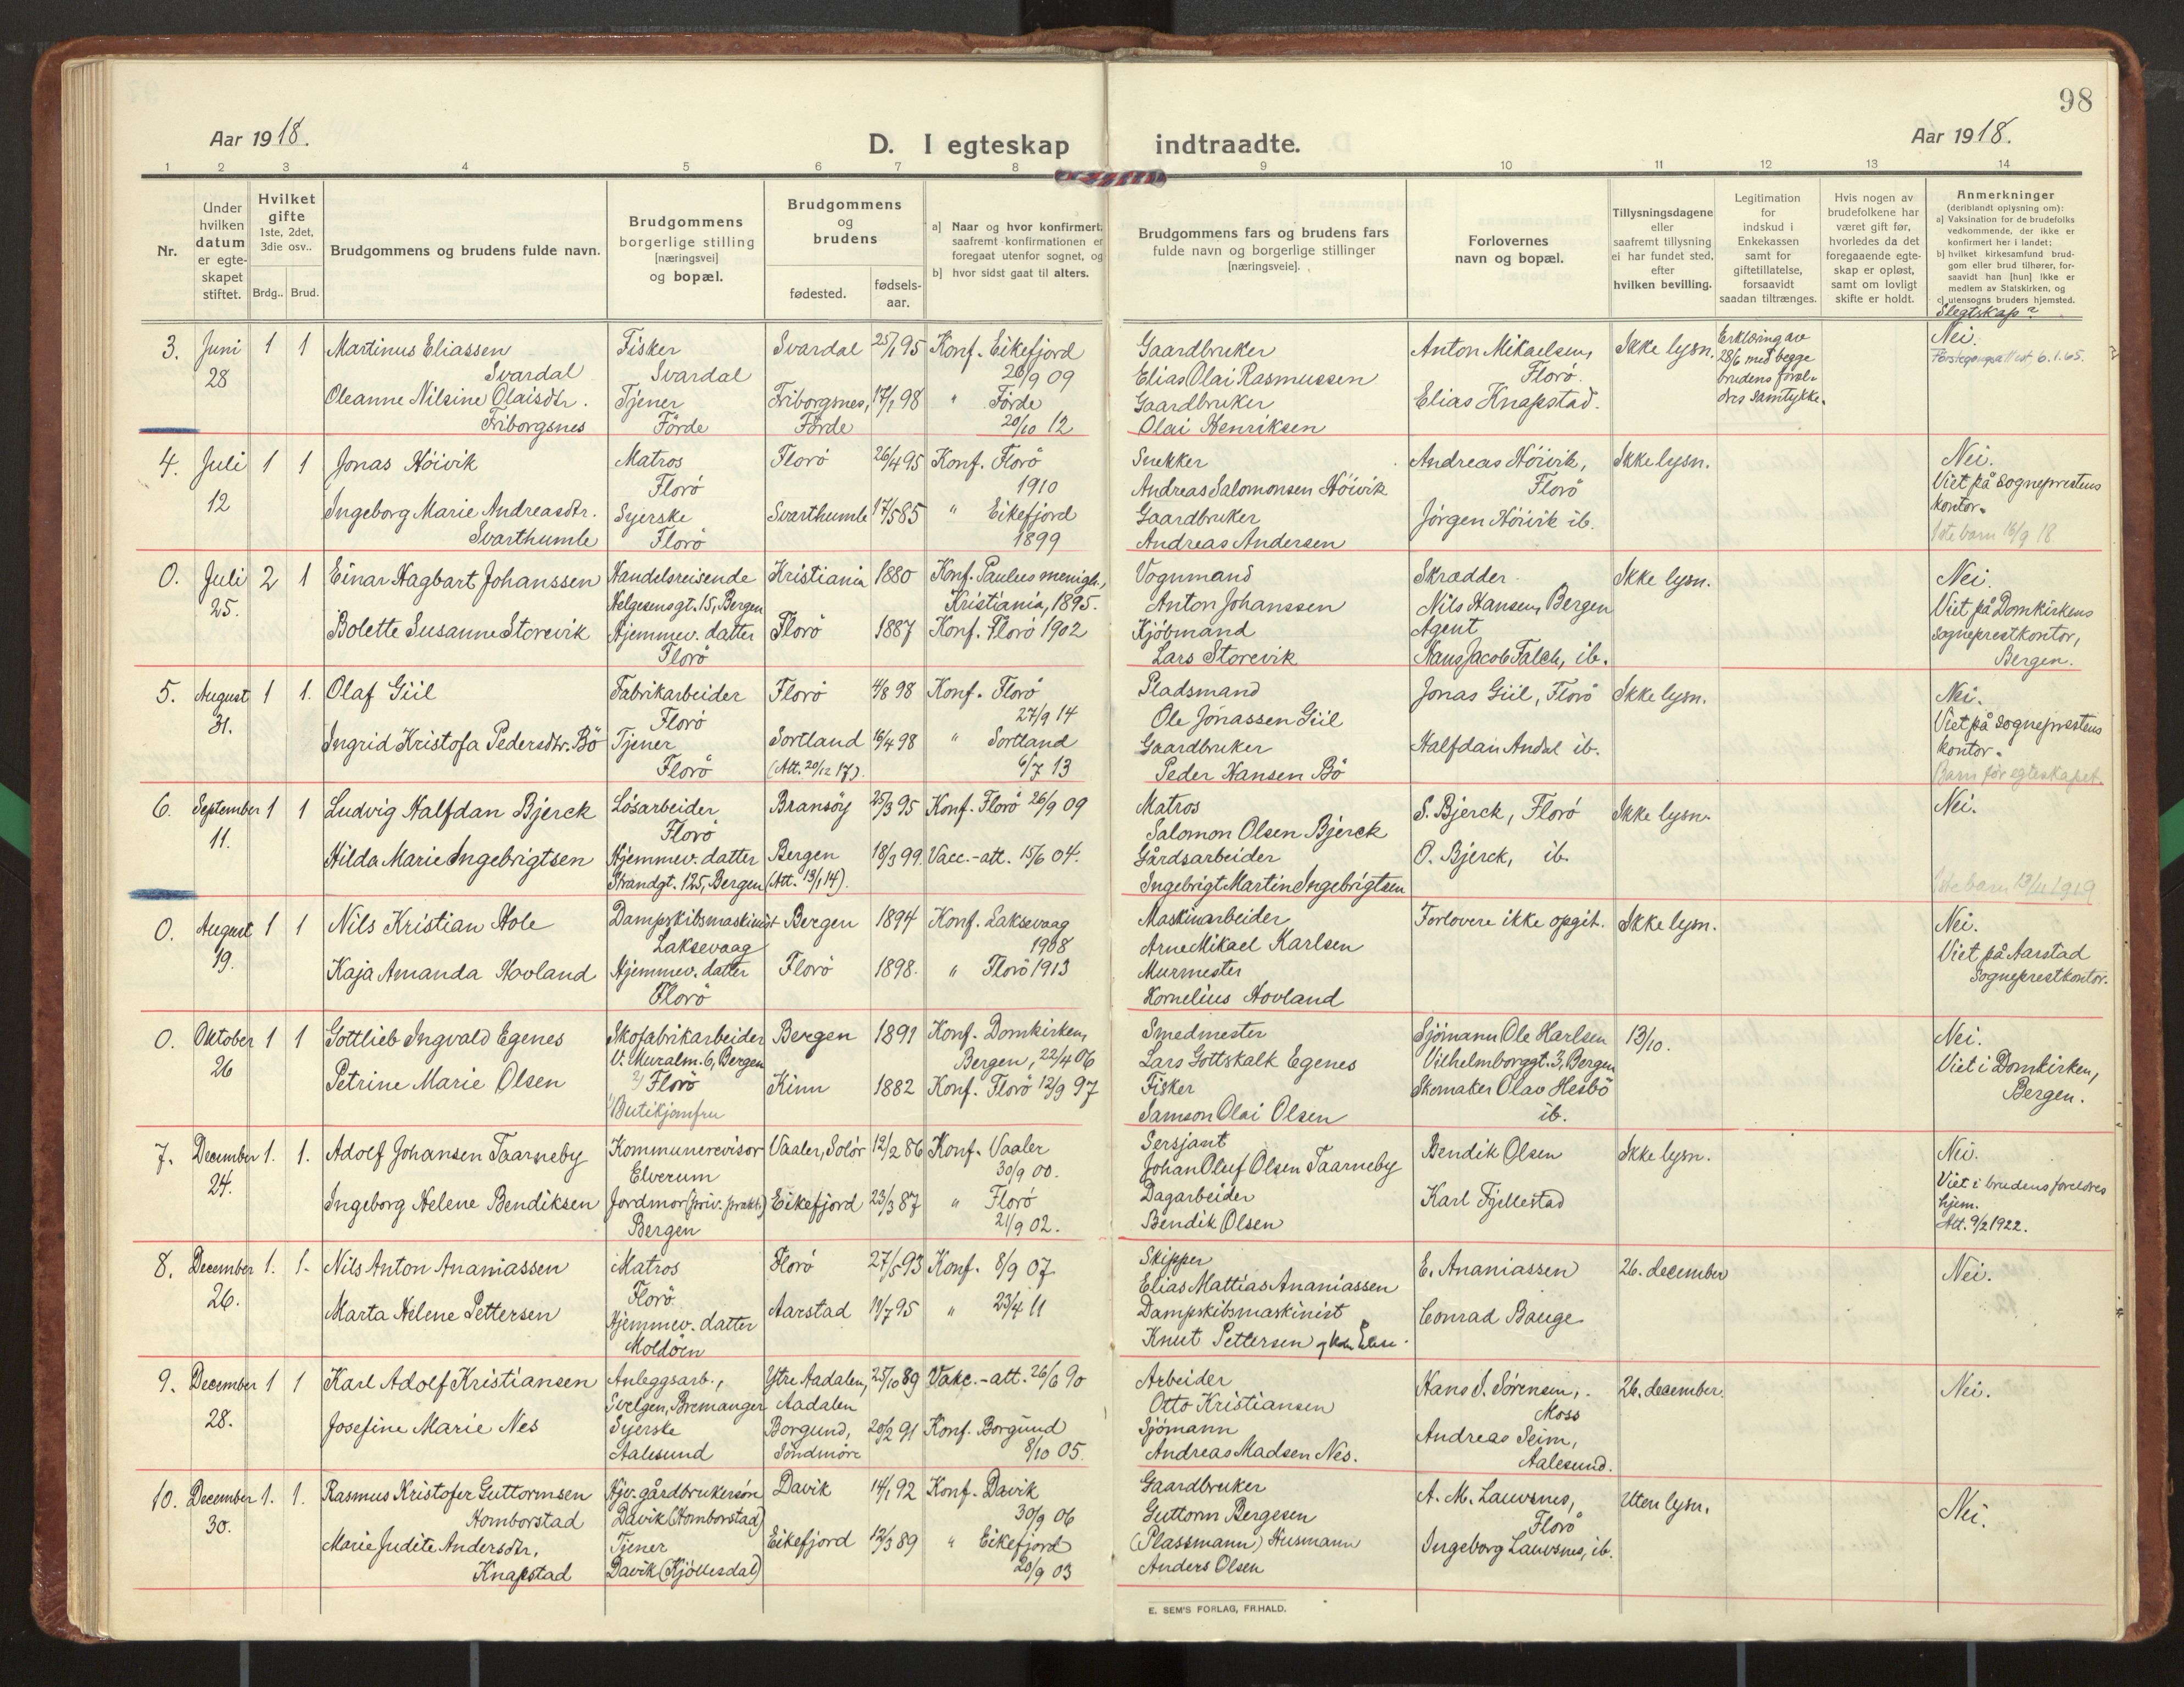 98
Aar 1918.
D. I egteskap indtraadte.
Aar 1918.
1 2 3 4 5 6 7 8 9 10 11 12 13 14
Nr.
Under hvilken datum er egteskapet stiftet.
Hvilket gifte 1ste, 2det, 3die osv..
Brdg.. Brud.
Brudgommens og brudens fulde navn.
Brudgommens borgerlige stilling [næringsvei] og bopæl.
Brudgommens og brudens
fødested.
fødsels-aar.
a] Naar og hvor konfirmert, saafremt konfirmationen er foregaat utenfor sognet, og
b] hvor sidst gaat til alters.
Brudgommens fars og brudens fars fulde navn og borgerlige stillinger [næringsveie].
Forlovernes navn og bopæl.
Tillysningsdagene eller saafremt tillysning ei har fundet sted, efter hvilken bevilling.
Legitimation for indskud i Enkekassen samt for giftetillatelse, forsaavidt saadan tiltrænges.
Hvis nogen av brudefolkene har været gift før, hvorledes da det foregaaende egteskap er opløst, samt om lovligt skifte er holdt.
Anmerkninger
(deriblandt oplysning om):
a] Vaksination for de brudefolks vedkommende, der ikke er konfirmert her i landet;
b] hvilket kirkesamfund brudgom eller brud tilhører, forsaavidt han [hun] ikke er medlem av Statskirken, og
c] utensogns bruders hjemsted.
Slegtskap?
3. Juni 28 1 1
Martinus Eliassen Svardal
Fisker Svardal
Svardal 25/1 95 Konf. Eikefjord 26/9 09
Gaardbruker Elias Olai Rasmussen
Anton Mikaelsen, Florö.
Ikke lysn.
Erklæring av 28/6 med begge brudens foreldres samtykke.
Nei.
6.1.65.
Oleanne Nilsine Olaisdtr. Friborgsnes
Tjener Förde
Friborgsnes, Förde 17/1 98 " Förde 20/10 12
Gaardbruker Olai Henriksen
Elias Knapstad.
4. Juli 12 1 1
Jonas Höivik
Matros Florö
Florö 26/4 95 Konf. Florö 1910
Snekker Andreas Salomonsen Höivik
Andreas Höivik, Florö
Ikke lysn.
Nei.
Viet på sogneprestens kontor.
1ste barn 16/9 18
Ingeborg Marie Andreasdtr. Svarthumle
Syerske Florö
Svarthumle 17/5 85 " Eikefjord 1899
Gaardbruker Andreas Andersen
Jörgen Höivik ib.
0. Juli 25. 2 1
Einar Hagbart Johanssen
Handelsreisende Helgesensgt. 15, Bergen
Kristiania 1880 Konf. Paulus menigh., Kristiania, 1895.
Vognmand Anton Johanssen
Skrædder Nils Hansen, Bergen
Ikke lysn.
Nei.
Viet på Domkirkens sogneprestkontor, Bergen.
Bolette Susanne Storevik
Hjemmev. datter Florö
Florö 1887 Konf. Florö 1902
Kjöbmand Lars Storevik
Agent Hans Jacob Falch, ib.
5. August 31. 1 1.
Olaf Giil
Fabrikarbeider Florö
Florö 4/8 98 Konf. Florö 27/9 14
Pladsmand Ole Jonassen Giil
Jonas Giil, Florö
Ikke lysn.
Nei.
Viet på sogneprestens kontor.
Barn før egteskapet.
Ingrid Kristofa Pedersdtr. Bö
Tjener Florö
Sortland (Att. 20/12 17). 16/4 98 " Sortland 6/7 13
Gaardbruker Peder Hansen Bö
Halfdan Andal ib.
6. September 11. 1 1
Ludvig Halfdan Bjerck
Lösarbeider Florö
Bransöy 25/3 95 Konf. Florö 26/9 09
Matros Salomon Olsen Bjerck
S. Bjerck, Florö
Ikke lysn.
Nei.
1ste barn 13/11 1919
Hilda Marie Ingebrigtsen
Hjemmev. datter Strandgt. 125, Bergen
Bergen (Att. 13/1 14). 18/3 99. Vacc.-att. 15/6 04.
Gårdsarbeider Ingebrigt Martin Ingebrigtsen
O. Bjerck, ib.
0. August 19. 1 1
Nils Kristian Hole
Dampskibsmaskinist Laksevaag
Bergen 1894 Konf. Laksevaag 1908
Maskinarbeider Arne Mikael Karlsen
Forlovere ikke opgit.
Ikke lysn.
Nei.
Viet på Aarstad Sogneprestkontor.
Kaja Amanda Hovland
Hjemmev. datter Florö
Florö 1898. " Florö 1913
Murmester Kornelius Hovland
0. Oktober 26 1 1
Gottlieb Ingvald Egenes
Skofabrikarbeider V. Muralm. 6, Bergen
Bergen 1891 Konf. Domkirken, Bergen, 22/4 06
Smedmester Lars Gottskalk Egenes
Sjömann Ole Karlsen Vilhelmborggt. 3, Bergen
13/10.
Nei.
Viet i Domkirken, Bergen.
Petrine Marie Olsen
2) Florö
1) Butikjomfru
Kinn 1882 Konf. Florö 12/9 97
Fisker Samson Olai Olsen
Skomaker Olav Hesbö ib.
7. December 24. 1. 1.
Adolf Johansen Taarneby
Kommunerevisor Elverum
Vaaler, Solör 12/2 86 Konf. Vaaler 30/9 00.
Sersjant Johan Oluf Olsen Taarneby
Bendik Olsen
Ikke lysn.
Nei.
Viet i brudens foreldres hjem.
Att. 9/2 1922.
Ingeborg Helene Bendiksen
Jordmor (priv. prakt.) Bergen
Eikefjord 23/3 87 " Florö 21/9 02.
Dagarbeider Bendik Olsen
Karl Fjellestad
8. December 26. 1. 1.
Nils Anton Ananiassen
Matros Florö.
Florö 27/5 93 Konf. 8/9 07
Skipper Elias Mattias Ananiassen
E. Ananiassen
26. december
Nei.
Marta Helene Pettersen
Hjemmev. datter Moldöen
Aarstad 11/7 95 " 23/4 11
Dampskibsmaskinist Knut Pettersen
Conrad Bauge
9. December 28. 1 1
Karl Adolf Kristiansen
Anleggsarb., Svelgen, Bremanger
Ytre Aadalen, Aadalen 25/10 89 Vakc.-att. 26/6 90
Arbeider Otto Kristiansen
Hans S. Sörensen, Moss
26. december.
Nei.
Josefine Marie Nes
Syerske Aalesund
Borgund, Söndmöre 20/2 91 Konf. Borgund 8/10 05.
Sjömann Andreas Madsen Nes.
Andreas Seim, Aalesund.
10. December 30. 1. 1.
Rasmus Kristofer Guttormsen Homborstad
Hjv. gårdbrukersön Davik (Homborstad)
Davik 14/1 92 Konf. Davik 30/9 06
Gaardbruker Guttorm Bergesen
A. M. Lauvsnes, Florö
Uten lysn.
Nei.
Marie Judite Andersdtr. Knapstad
Tjener Davik (Kjöllesdal)
Eikefjord 12/3 89 " Eikefjord 20/9 03
(Plassmann) Husmann Anders Olsen
Ingeborg Lauvsnes, ib.
E. SEM'S FORLAG, FR.HALD.